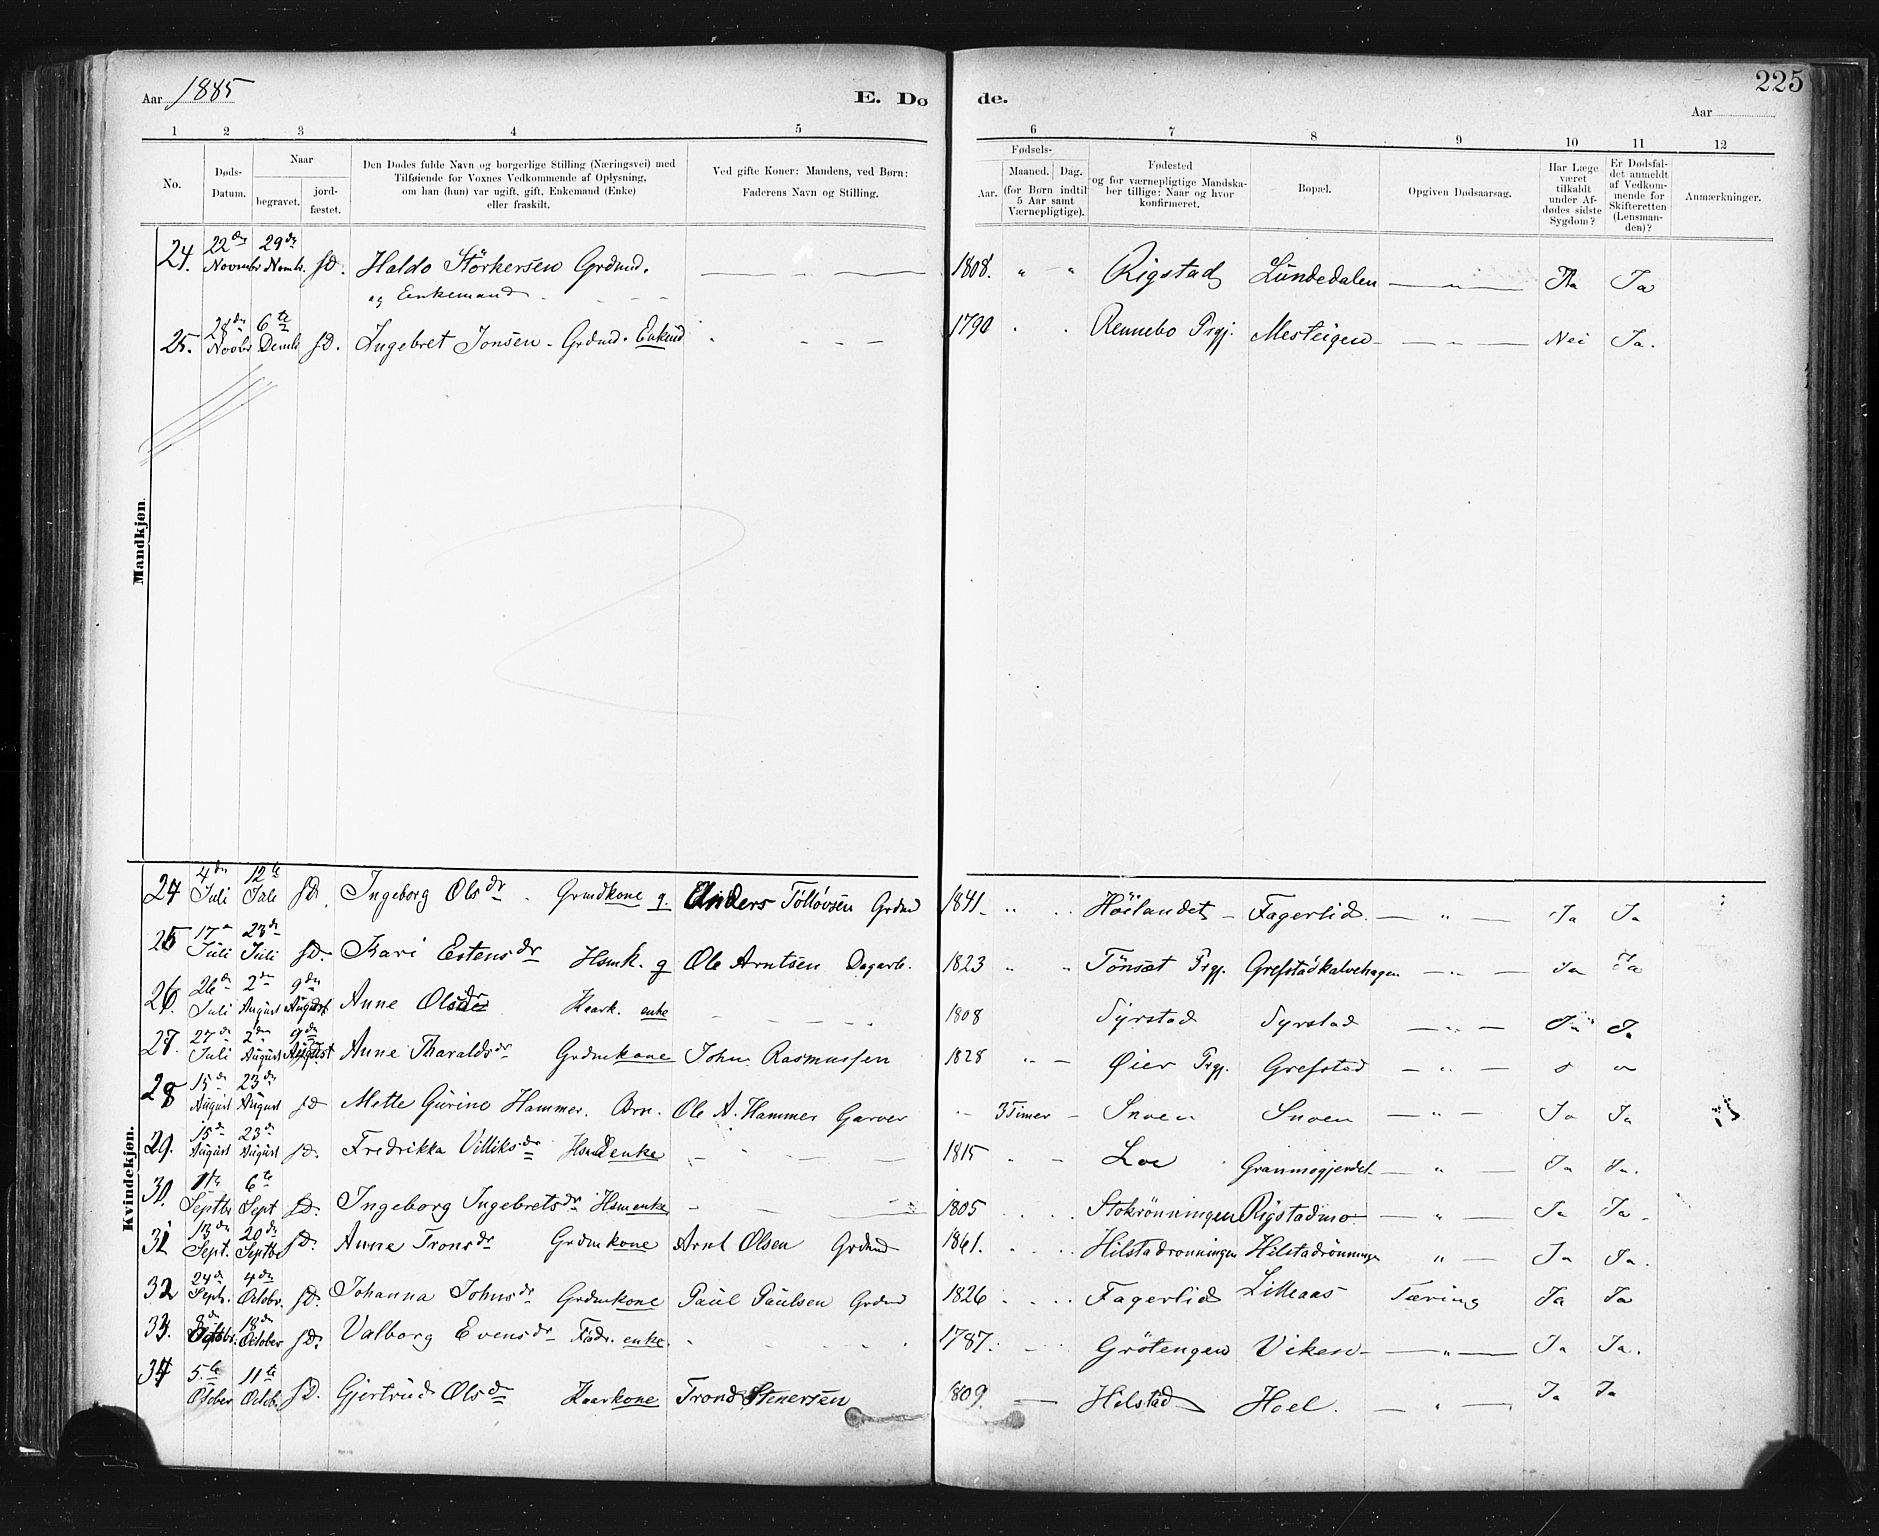 Aar 1885
E. Dø de.
225
Aar
1 2 3 4 5 6 7 8 9 10 11 12
No.
Døds-
Datum.
Naar
begravet.
jord-
fæstet.
Den Dødes fulde Navn og borgerlige Stilling (Næringsvei) med
Tilføiende for Voxnes Vedkommende af Oplysning,
om han (hun) var ugift, gift, Enkemand (Enke)
eller fraskilt.
Ved gifte Koner: Mandens, ved Børn:
Faderens Navn og Stilling.
Fødsels-
Aar.
Maaned. Dag.
(for Børn indtil
5 Aar samt
Værnepligtige).
Fødested
og for værnepligtige Mandska-
ber tillige: Naar og hvor
konfirmeret.
Bopæl.
Opgiven Dødsaarsag.
Har Læge
været
tilkaldt
under Af-
dødes sidste
Sygdom?
Er Dødsfal-
det anmeldt
af Vedkom-
mende for
Skifteretten
(Lensman-
den)?
Anmærkninger.
Mandkjøn.
24. 22de Novembr 29de Novb. sD. Haldo Störkersen Grdmd. 1808. " " Rigstad Lundedalen — " — Ja Ja
og Enkemand
25. 28de Novbr 6te Decmb sD. Ingebret Jonsen Grdmd. Enkmd 1790 Rennebo Prgj. Mesteigen — " — Nei Ja.
Kvindekjøn.
24 4de Juli 12te Juli sD. Ingeborg Olsdr Grmdkone g. Anders Tölløvsen Grdmd 1841 Höilandet Fagerlid — " — Ja Ja
25 17de Juli 23de Juli sD. Kari Estensdr Hsmk. g Ole Arntsen Dagarb. 1823 " " Tönsæt Prgj. Grefstadkalvehagen — " — Ja Ja
26. 26de Juli 2den August 9de August Anne Olsdr Kaark. enke 1808 Syrstad Syrstad — " — Ja Ja
27. 27de Juli 2den August 9de August Anne Tharaldsdr Grdmkone John Rasmussen 1828 " — Øier Prgj. Grefstad — " —
28 15de August 23de August sD Mette Gurine Hammer. Brn. Ole A. Hammer Garver 3 Timer Snoen Snoen — " — Ja Ja
29. 15de August 23de August sD. Fredrikka Villiksdr Hsmdenke 1815 Loe Granmogjerdet — " — Ja Ja.
30. 1ste Septbr 6te Sept sD. Ingeborg Ingebretsdr Hsmenke 1805 Stokrönningen Rigstadmo — " — Ja Ja
31 13de Sept. 20de Septbr sD. Anne Tronsdr Grdmkone Arnt Olsen Grdmd 1861. Hilstadronningen Hilstadrönningen " — Ja Ja.
32 24de Sept. 4de Octobr. sD. Johanna Johnsdr Grdmkone Paul Paulsen Grdmd 1826 Fagerlid Lilleaas Tæring Ja Ja
33. 8de Octobr. 18de October sD. Valborg Evensdr Födr. enke 1787. Grötengen Viken — " — Ja Ja.
34 5te October 11te Octob. sD. Gjertrud Olsdr Kaarkone Trond Stenersen 1809. Hilstad Hoel. — " — Ja Ja